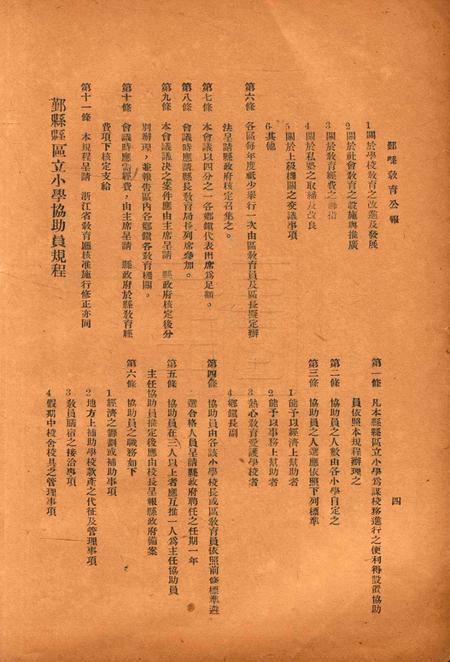 鄞縣敎育公報
四
1關於學校敎育之改進及發展
2關於社會敎育之設施與推廣
3關於敎育經費之籌措
4關於私塾之取締及改良
5關於上級機關之交議事項
6其他
第六條　各區每年度祇少舉行一次由區敎育員及區長擬定辦
法呈請縣政府核定召集之。
第七條　本會議以四分之一各鄉鎭代表出席爲足額。
第八條　會議時應請縣長敎育局長列席參加。
第九條　本會議議決之案件應由主席呈請　縣政府核定後分
別辦理，並報告區內各鄉鎭各敎育機關。
第十條　會議時應需經費，由主席呈請　縣政府於縣敎育經
費項下核定支給
第十一條　本規程呈請　浙江省敎育廳核准施行修正亦同
鄞縣縣區立小學協助員規程
第一條　凡本縣縣區立小學爲謀校務進行之便利得設置協助
員依照本規程辦理之
第二條　協助員之人數由各小學自定之
第三條　協助員之人選應依照下列標準
1能予以經濟上幫助者
2能予以事務上幫助者
3熱心敎育愛護學校者
4鄉鎭長副
第四條　協助員由各該小學校長或區敎育員依照前條標準選
選合格人員呈請縣政府聘任之任期一年
第五條　協助員在三人以上者應互推一人爲主任協助員
主任協助員推定後應由校長呈報縣政府備案
第六條　協助員之職務如下
1經濟之籌劃或補助事項
2地方上補助學校款產之代征及管理事項
3敎員膳宿之接洽事項
4假期中校舍校具之管理事項